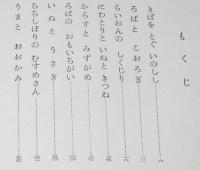 もくじ
きばを とぐ いのしし
ろばと こおろぎ
らいおんの しくじり
にわとりと いぬと きつね
からすと みずがめ
ろばの おもいちがい
いぬと うさぎ
ちちしぼりの むすめさん
うまと おおかみ